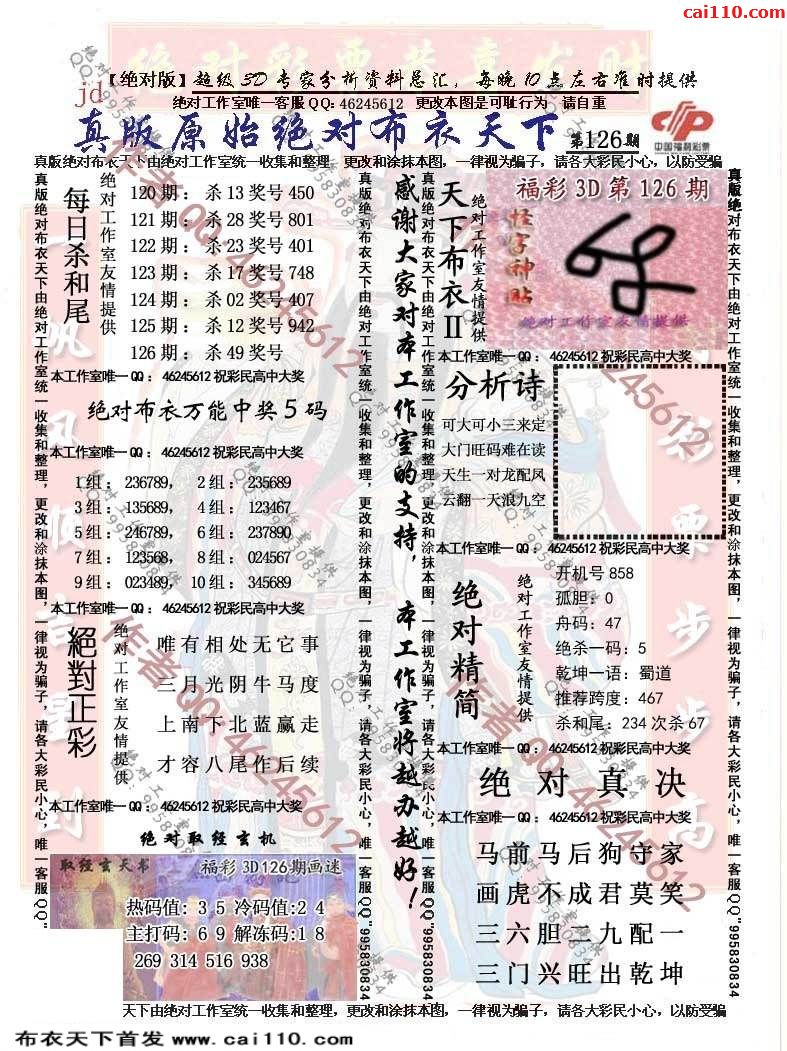 cai110.com
【绝对版】超级3D专家分析资料总汇，每晚10点左右准时提供
jd
绝对工作室唯一客服QQ: 46245612 更改本图是可耻行为 请自重
真版原始绝对布衣天下 第126期
中国福利彩票
真版绝对布衣天下由绝对工作室统一收集和整理，更改和涂抹本图，一律视为骗子，请各大彩民小心，以防受骗
每日杀和尾
绝对工作室友情提供
120期：杀13奖号450
121期：杀28奖号801
122期：杀23奖号401
123期：杀17奖号748
124期：杀02奖号407
125期：杀12奖号942
126期：杀49奖号
本工作室唯一QQ：46245612祝彩民高中大奖
绝对布衣万能中奖5码
本工作室唯一QQ：46245612祝彩民高中大奖
1组：236789，2组：235689
3组：135689，4组：123467
5组：246789，6组：237890
7组：123568，8组：024567
9组：023489，10组：345689
本工作室唯一QQ：46245612祝彩民高中大奖
絕對正彩
绝对工作室友情提供
唯有相处无它事
三月光阴牛马度
上南下北蓝赢走
才容八尾作后续
本工作室唯一QQ：46245612祝彩民高中大奖
绝对取经玄机
取经玄天书
福彩3D126期画迷
热码值：3 5 冷码值:2 4
主打码：6 9 解冻码:1 8
269 314 516 938
感谢大家对本工作室的支持，本工作室将越办越好！
天下布衣II
绝对工作室友情提供
福彩3D第126期
怪字神贴
绝对工作室友情提供
本工作室唯一QQ：46245612祝彩民高中大奖
分析诗
可大可小三来定
大门旺码难在读
天生一对龙配凤
云翻一天浪九空
本工作室唯一QQ：46245612祝彩民高中大奖
绝对精简
绝对工作室友情提供
开机号858
孤胆：0
舟码：47
绝杀一码：5
乾坤一语：蜀道
推荐跨度：467
杀和尾：234 次杀67
本工作室唯一QQ：46245612祝彩民高中大奖
绝对真决
本工作室唯一QQ：46245612祝彩民高中大奖
马前马后狗守家
画虎不成君莫笑
三六胆二九配一
三门兴旺出乾坤
真版绝对布衣天下由绝对工作室统一收集和整理，更改和涂抹本图，一律视为骗子，请各大彩民小心，唯一客服QQ"995830834
真版绝对布衣天下由绝对工作室统一收集和整理，更改和涂抹本图，一律视为骗子，请各大彩民小心，唯一客服QQ"995830834
真版绝对布衣天下由绝对工作室统一收集和整理，更改和涂抹本图，一律视为骗子，请各大彩民小心，唯一客服QQ"995830834
真版绝对布衣天下由绝对工作室统一收集和整理，更改和涂抹本图，一律视为骗子，请各大彩民小心，唯一客服QQ"995830834
天下由绝对工作室统一收集和整理，更改和涂抹本图，一律视为骗子，请各大彩民小心，以防受骗
布衣天下首发 www.cai110.com